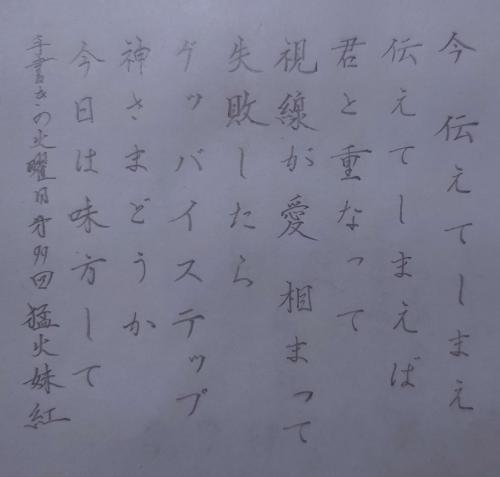 今 伝えてしまえ
伝えてしまえば
君と重なって
視線が愛 相まって
失敗したら
グッバイステップ
神さまどうか
今日は味方して
手書きの火曜日第99回 猛火妹紅